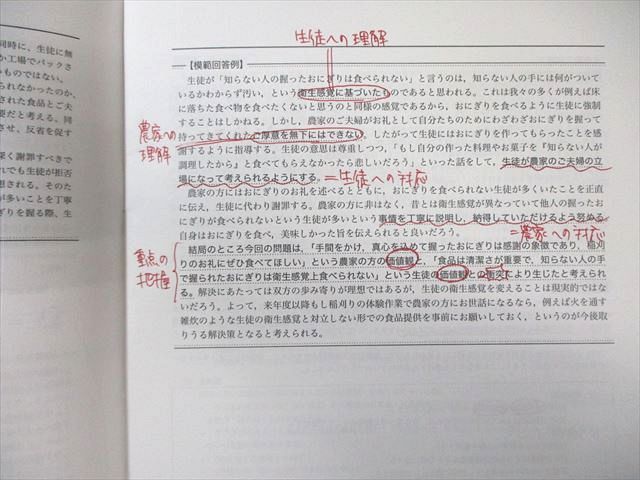 同時に、生徒に無
工場でパックさ
いものではない。
られなかったのか、
された食品とご夫
要だと考える。同
させ、反省を促す
深く謝罪すべきで
れでも生徒が拒否
想される。そのた
が多いことを丁寧
ぎりを握る際、生
生徒への理解
【模範回答例】
生徒が「知らない人の握ったおにぎりは食べられない」と言うのは、知らない人の手には何がついて
いるかわからず汚い、という衛生感覚に基づいたものであると思われる。これは我々の多くが例えば床
に落ちた食べ物を食べたくないと思うのと同様の感覚であるから、おにぎりを食べるように生徒に強制
することはしかねる。しかし、農家のご夫婦がお礼として自分たちのためにわざわざおにぎりを握って
農家への
理解
持ってきてくれたご厚意を無下にはできない。したがって生徒にはおにぎりを作ってもらったことを感
謝するように指導する。生徒の意思は尊重しつつ、「もし自分の作った料理やお菓子を『知らない人が
調理したから』と食べてもらえなかったら悲しいだろう」といった話をして、生徒が農家のご夫婦の立
場になって考えられるようにする。
=生徒への対応
農家の方にはおにぎりのお礼を述べるとともに、おにぎりを食べられない生徒が多くいたことを正直
に伝え、生徒に代わり謝罪する。農家の方に非はなく、昔とは衛生感覚が異なっていて他人の握ったお
にぎりが食べられないという生徒が多いという事情を丁寧に説明し、納得していただけるよう努める。
自身はおにぎりを食べ、美味しかった旨を伝えられると良いだろう。
=農家への対応
重点の
把握
結局のところ今回の問題は、「手間をかけ、真心を込めて握ったおにぎりは感謝の象徴であり、稲刈
りのお礼にぜひ食べてほしい」という農家の方の価値観と、「食品は清潔さが重要で、知らない人の手
で握られたおにぎりは衛生感覚上食べられない」という生徒の価値観との衝突により生じたと考えられ
る。解決にあたっては双方の歩み寄りが理想ではあるが、生徒の衛生感覚を変えることは現実的ではな
いだろう。よって、来年度以降もし稲刈りの体験作業で農家の方にお世話になるなら、例えば火を通す
雑炊のような生徒の衛生感覚と対立しない形での食品提供を事前にお願いしておく、というのが今後取
りうる解決策となると考えられる。